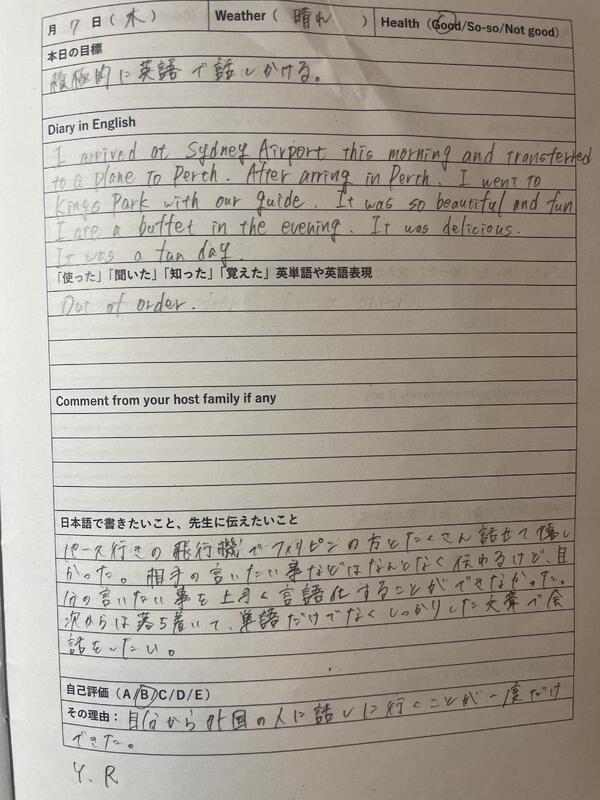 月 7 日（木） Weather（ 晴れ ） Health (Good/So-so/Not good)
本日の目標
積極的に英語で話しかける。
Diary in English
I arrived at Sydney Airport this morning and transferred
to a plane to Perth. After arring in Perth. I went to
Kings Park with our guide. It was so beautiful and fun
I ate a buffet in the evening. It was delicious.
It was a fun day.
「使った」「聞いた」「知った」「覚えた」英単語や英語表現
Out of order.
Comment from your host family if any
日本語で書きたいこと、先生に伝えたいこと
パース行きの飛行機でフィリピンの方とたくさん話せて嬉し
かった。相手の言いたい事などはなんとなく伝わるけど、自
分の言いたい事を上手く言語化することができなかった。
次からは落ち着いて、単語だけでなくしっかりした文章で会
話をしたい。
自己評価（A/B/C/D/E）
その理由：自分から外国の人に話しに行くことが一度だけ
できた。
Y. R